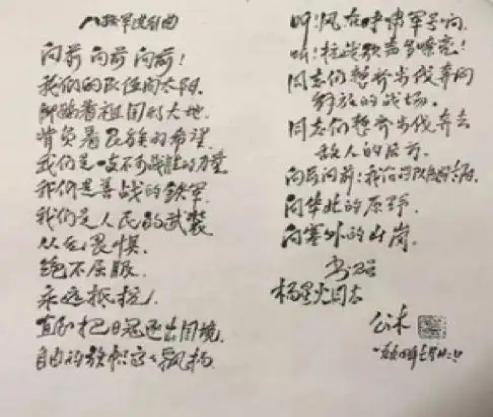 八路军进行曲
向前 向前 向前!
我们的队伍向太阳,
脚踏着祖国的大地,
背负着民族的希望,
我们是一支不可战胜的力量.
我们是善战的铁军
我们是人民的武装
从无畏惧,
绝不屈服,
永远抵抗!
直到把日寇逐出国境,
自由的旗帜高高飘扬.
听!风在呼啸军号响,
听!抗战歌声多嘹亮!
同志们整齐步伐奔向
解放的战场,
同志们整齐步伐奔去
敌人的后方,
向前向前!我们的队伍向太阳,
向华北的原野,
向塞外的山岗.
书赠
杨星火同志
公木